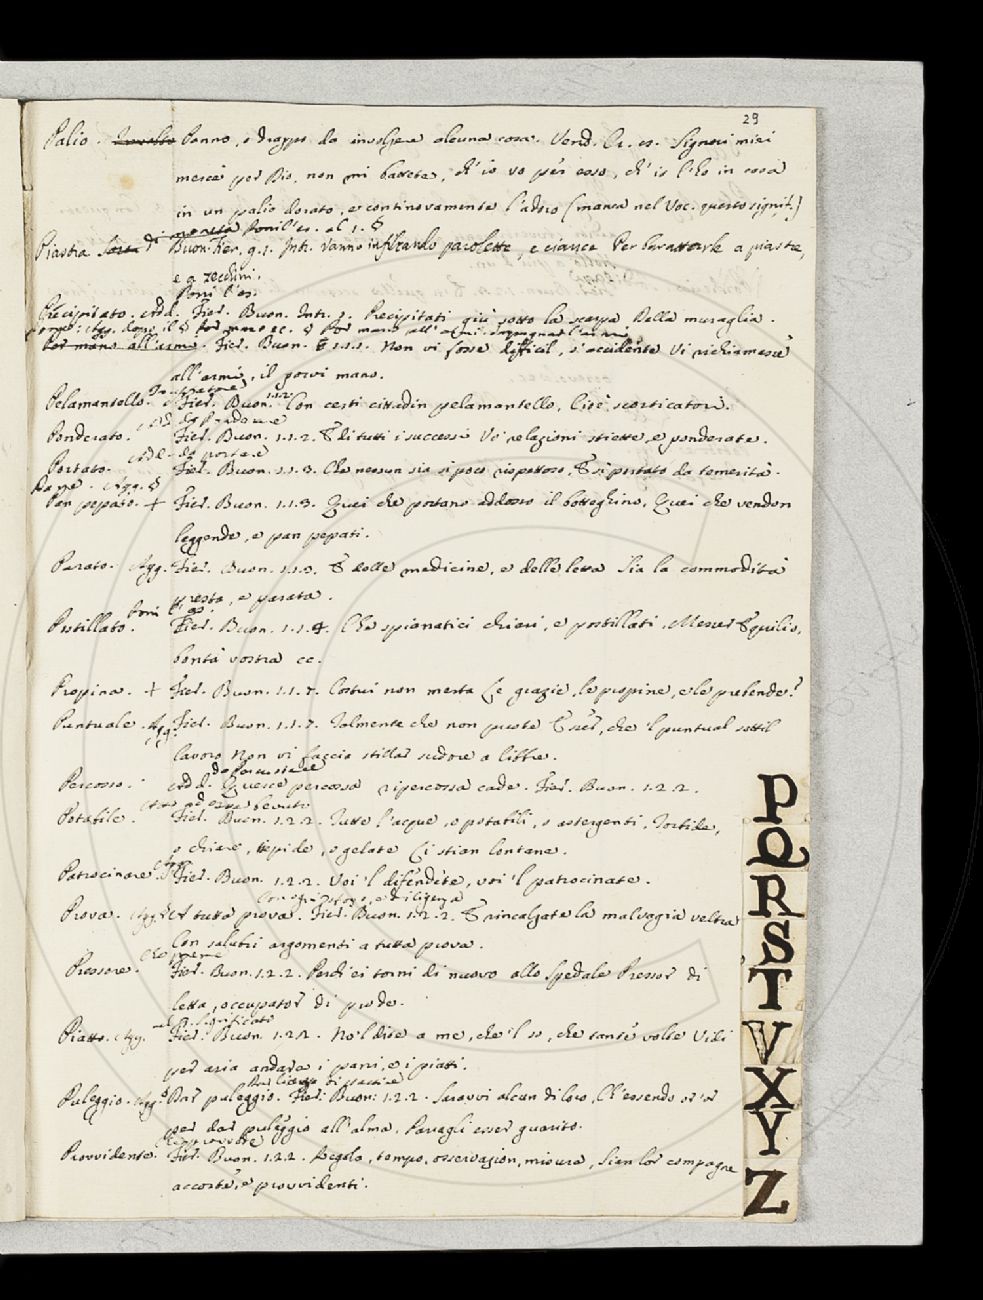 29
Palio. Panno, o drappo da involgere alcuna cosa. Vend. Cr. es. Signori miei
mercè per Dio, non mi battete, ch'io vo per esso, ch'io l'ho in casa
in un palio dorato, e continovamente l'adoro (manca nel Voc. questo signif.)
di moneta Poni l'es. al §.
Piastra. Buon. Fier. g. 1. Int. Vanno infilzando parolette, e ciance Per barattarle a piastre,
e a zecchini.
Poni l'es.
Precipitato. Add. Fier. Buon. Intr. Precipitati giù sotto la scarpa Della muraglia.
Por mano all'arme. Fier. Buon. 1.1.1. Non vi fosse difficil, s'accidente Vi richiamasse
all'armi, il porvi mano.
Pelamantello. Fier. Buon. 1.1.2. Con certi cittadin pelamantello, Cioè scorticatori.
Ponderato. Add. da Ponderare
Fier. Buon. 1.1.2. E di tutti i successi Vo' relazioni striette, e ponderate.
Portato. Add. da portare
Fier. Buon. 1.1.3. Che nessun sia sì poco rispettoso, E sì portato da temerità.
Pan pepato. + Fier. Buon. 1.1.3. Quei che portano addosso il botteghino, Quei che vendon
leggende, e pan pepati.
Parato. Agg. Fier. Buon. 1.1.3. E delle medicine, e delle letta Sia la commodità
presta, e parata.
Poni l'es.
Postillato. Fier. Buon. 1.1.4. Che spianatici chiari, e postillati, Messer Equilio,
bontà vostra ec.
Propina. + Fier. Buon. 1.1.7. Costui non merta Le grazie, le propine, e le prebende?
Puntuale. Agg. Fier. Buon. 1.1.7. Talmente che non puote Esser, che 'l puntual sottil
lavoro Non vi faccia stillar sudore a libbre.
Percosso. Add. da Percuotere
Quince percossa ripercossa cade. Fier. Buon. 1.2.2.
Potabile. Atto ad esser bevuto
Fier. Buon. 1.2.2. Tutte l'acque, o potabili, o astergenti, Torbide,
o chiare, tepide, o gelate Ci stian lontane.
Patrocinare. Fier. Buon. 1.2.2. Voi 'l difendete, voi 'l patrocinate.
Con ogni sforzo, e diligenza
Prova. Agg. A tutta prova. Fier. Buon. 1.2.2. E rincalzate la malvagia veltra
Con salutii argomenti a tutta prova.
Che preme
Pressore. Fier. Buon. 1.2.2. Perch'ei torni di nuovo allo Spedale Pressor di
letta, occupator di prode.
nel p. significato
Piatto. Agg. Fier. Buon. 1.2.2. No 'l dite a me, che 'l so, che tante volte Vidi
per aria andare i pani, e i piatti.
Dar licenza di partire
Puleggio. Agg. Dar puleggio. Fier. Buon. 1.2.2. Saravvi alcun di loro, Ch'essendo or' or
per dar puleggio all'alma, Paragli esser guarito.
Che provvede
Provvidente. Fier. Buon. 1.2.2. Regola, tempo, osservazion, misura, Sian lor compagne
accorte, e provvidenti.
P
Q
R
S
T
V
X
Y
Z